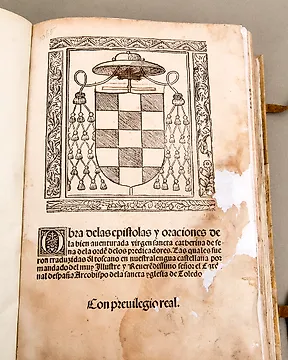 Obra delas epistolas y oraciones de
la bien auenturada virgen sancta catherina de se
na dela ordẽ delos predicadores. Las quales fue
ron traduzidas dl toscano en nuestra lengua castellana por
mandado del muy Illustre y Reuerẽdissimo señor el Cardenal
nal despaña Arcobispo dela sancta yglesia de Toledo
Con preuilegio real.